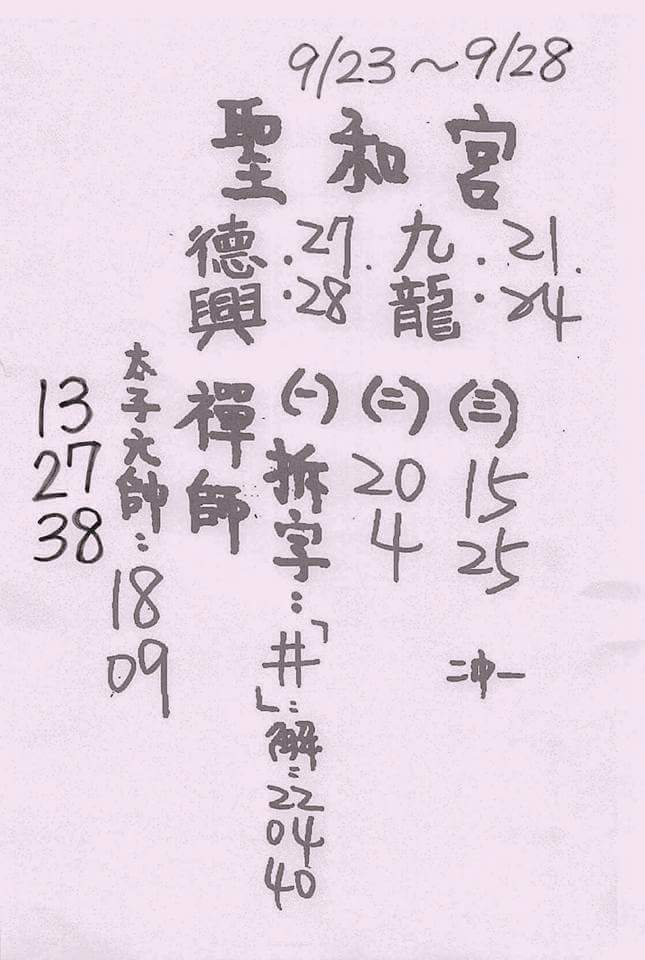 9/23～9/28
聖和宮
德興:27.28
九龍:21.24
禪師
(一)拆字:「井」:解:22 04 40
(二)20 4
(三)15 25
二沖一
太子元帥:18 09
13
27
38